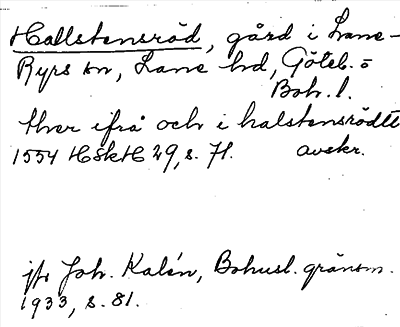 Hallstensröd, gård i Lane-
Ryrs sn, Lane hd, Göteb. o
Boh. l.
ther ifrå och i halstensrödtt
1554 HSkH 29, s. 71. avskr.
jfr Joh. Kalén, Bohusl. gränsm.
1933, s. 81.